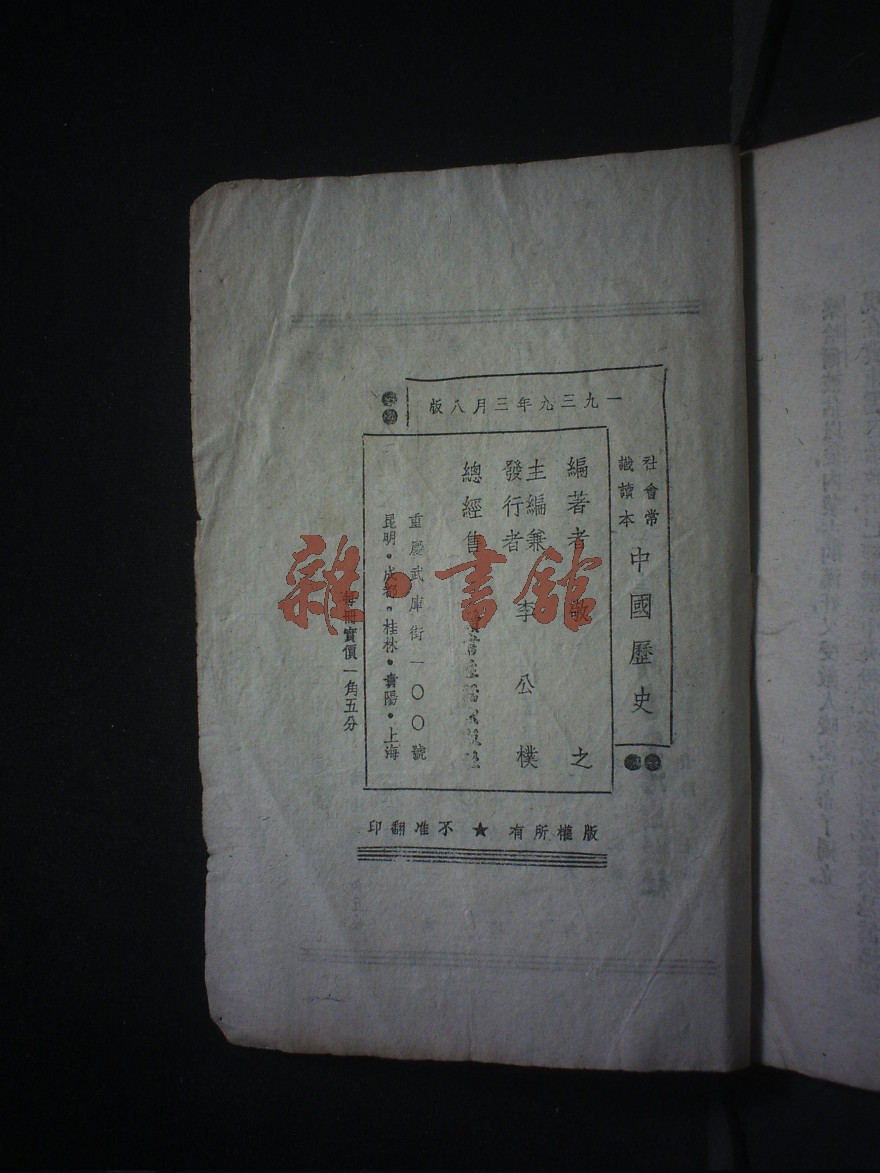 一九三九年三月八版
社會常
識讀本
中國歷史
編著者 敬之
主編兼
發行者
李公樸
總經售
重慶武庫街一〇〇號
昆明·成都·桂林·貴陽·上海
每冊實價一角五分
版權所有★不准翻印
雜·書舘